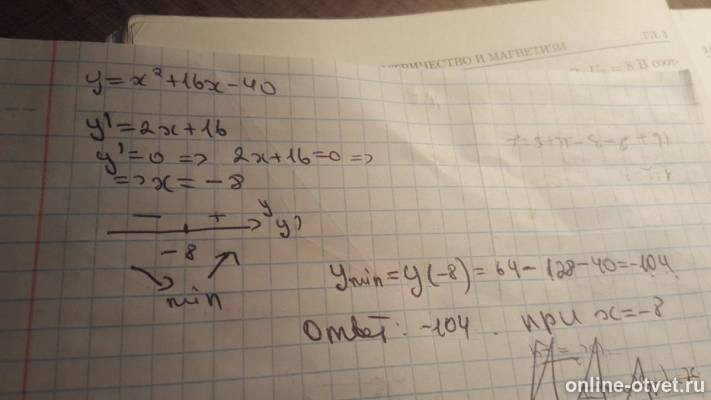 ГЛ.1
ИЧЕСТВО И МАГНЕТИЗМ
= 8 В соот-
y = x² + 16x - 40
y' = 2x + 16
y' = 0 => 2x + 16 = 0 =>
=> x = -8
- + y
y'
-8
min
y min = y(-8) = 64 - 128 - 40 = -104
Ответ: -104. при x = -8
online-otvet.ru